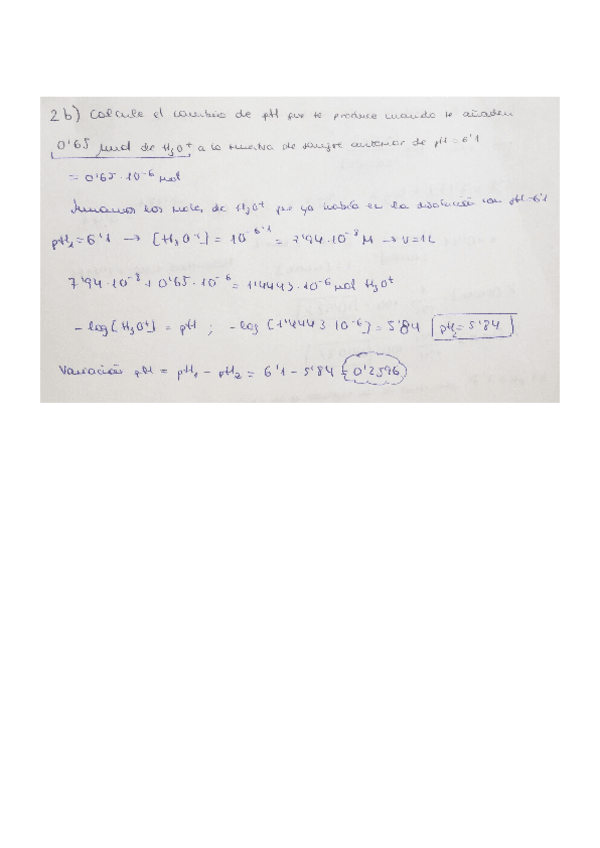 2b) Calcule el cambio de pH que se produce cuando se añaden
0'65 μmol de H₃O⁺ a la muestra de sangre anterior de pH = 6'1
= 0'65·10⁻⁶ mol
Sumamos los moles de H₃O⁺ que ya había en la disolución con pH=6'1
pH₁=6'1 → [H₃O⁺] = 10⁻⁶'¹ = 7'94·10⁻⁸ M → V=1L
7'94·10⁻⁸ + 0'65·10⁻⁶ = 1'4443·10⁻⁶ mol H₃O⁺
-log[H₃O⁺] = pH ; -log [1'4443·10⁻⁶] = 5'84 pH₂=5'84
Variación pH = pH₁ - pH₂ = 6'1 - 5'84 = 0'2596